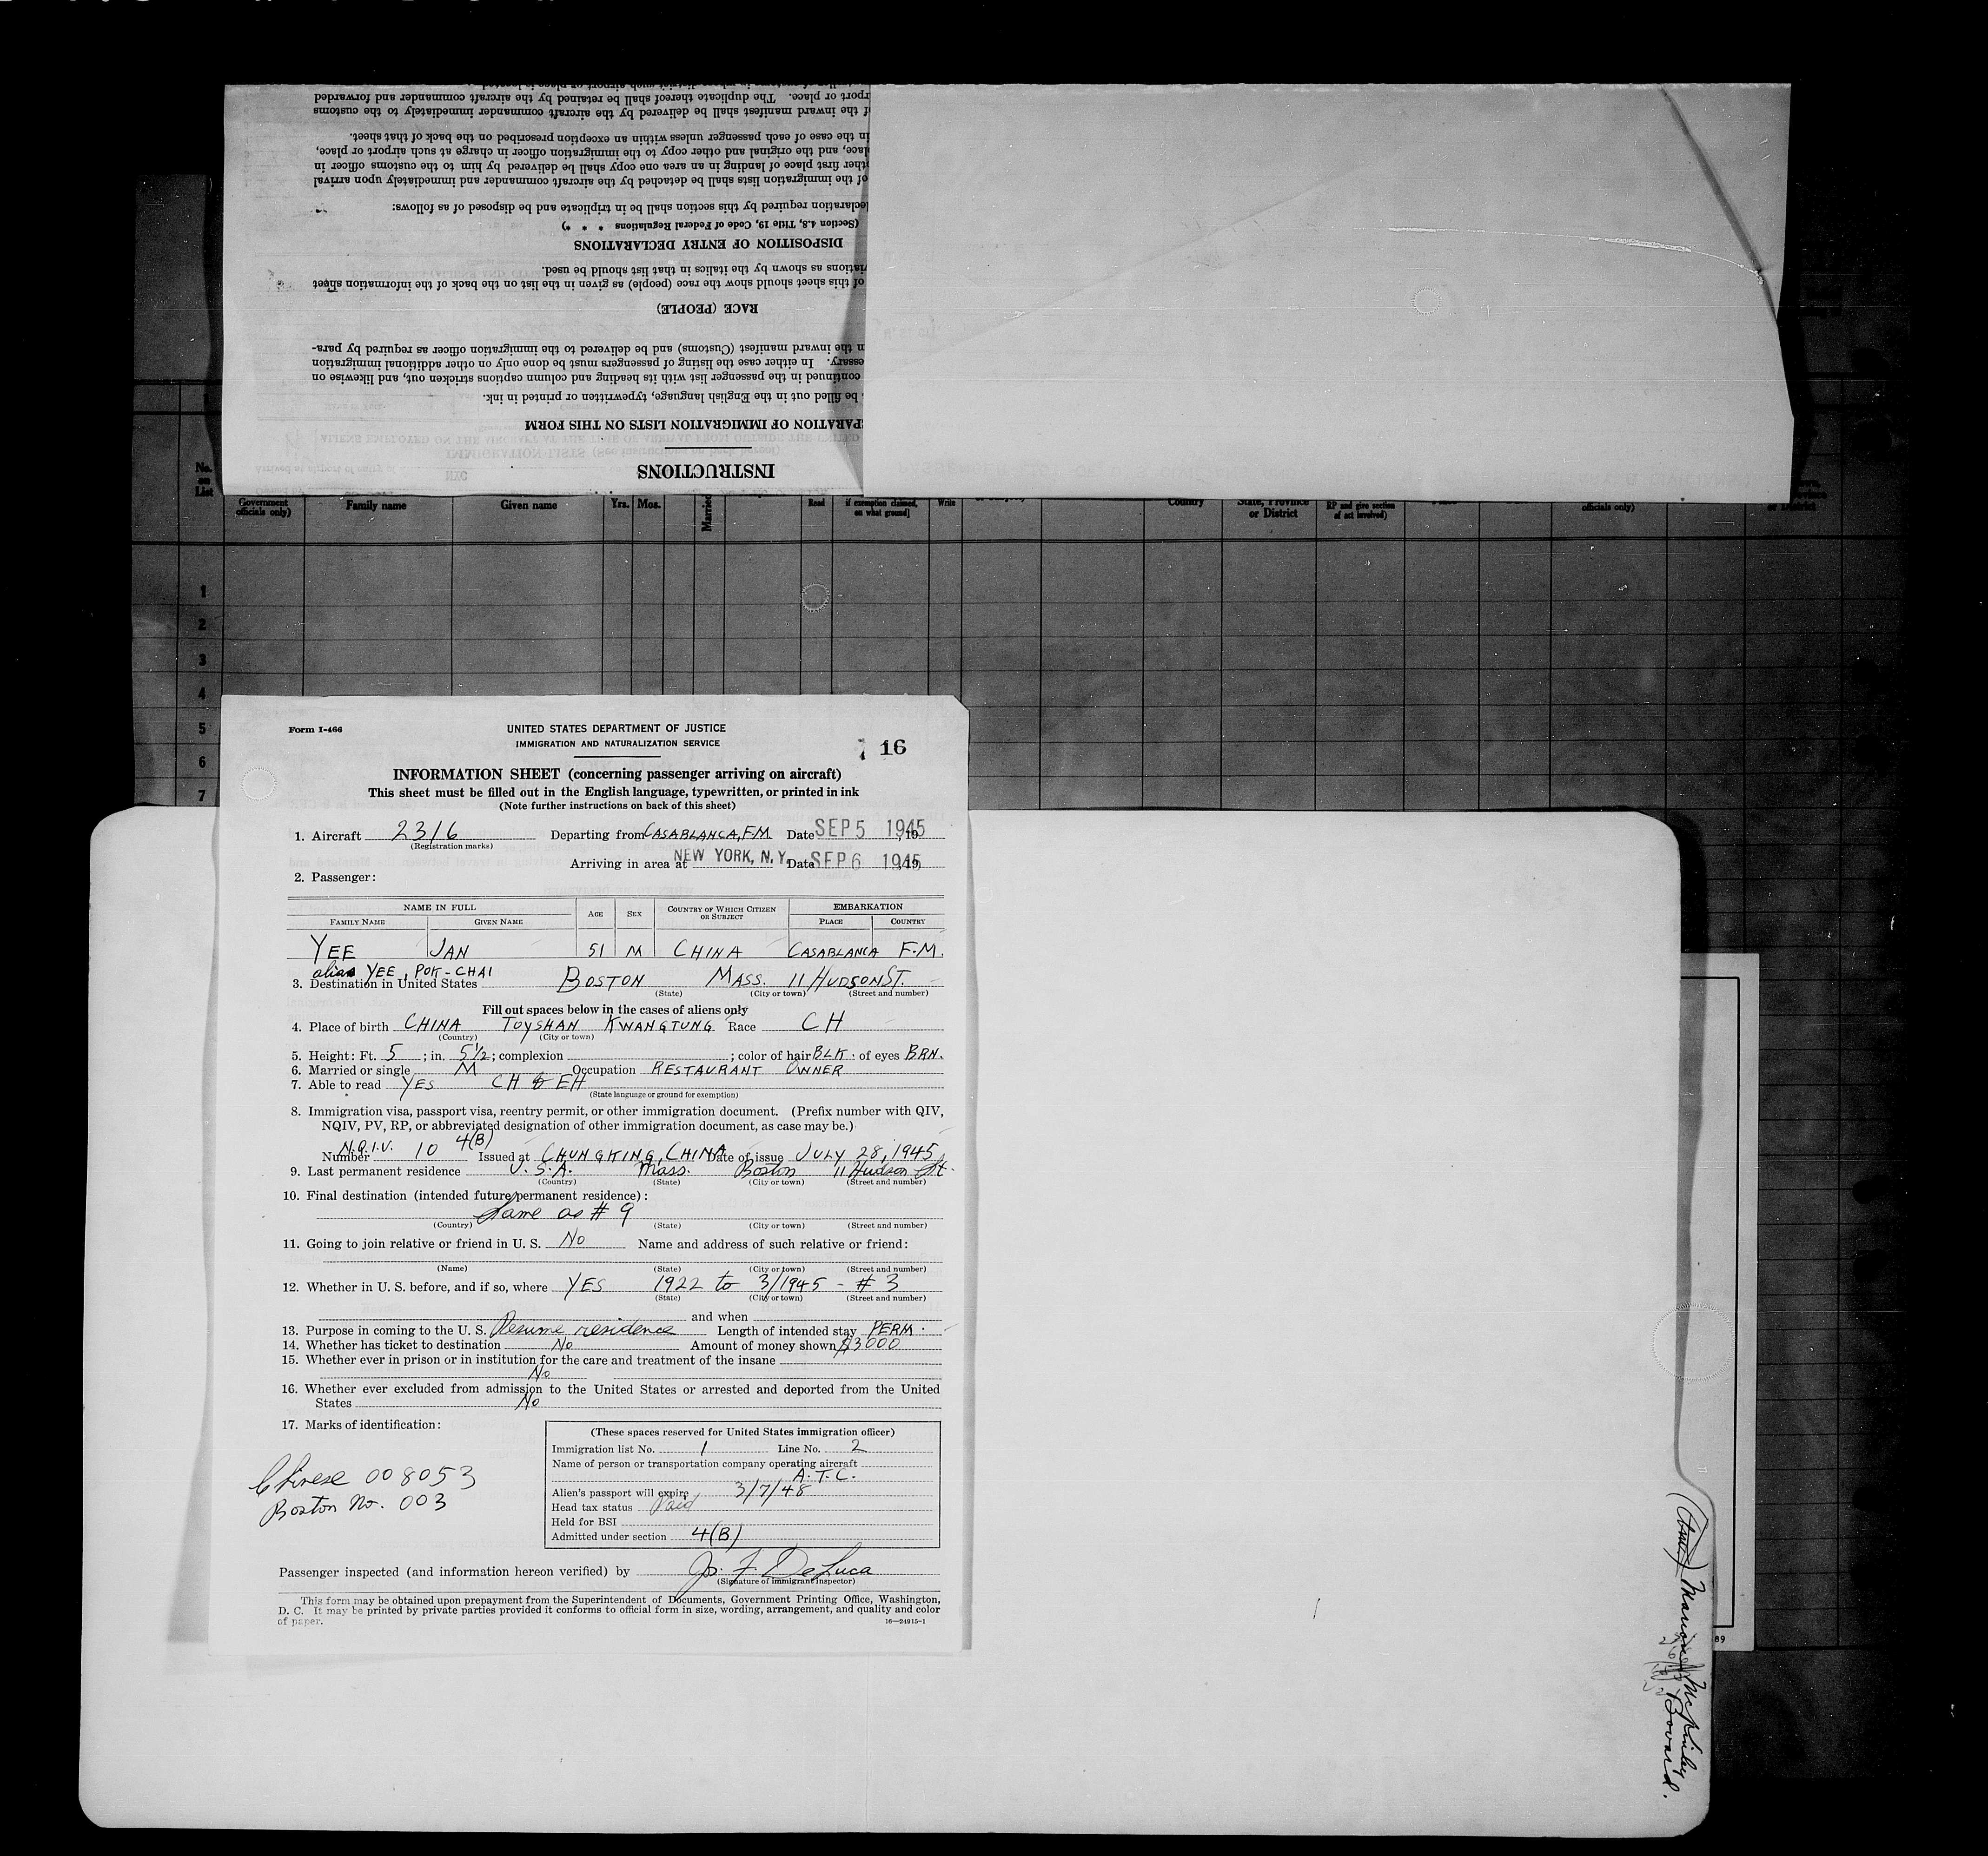 rport or place. The duplicate thereof shall be retained by the aircraft commander and forwarded
f the inward manifest shall be delivered by the aircraft commander immediately to the customs
in the case of each passenger unless within an exception prescribed on the back of that sheet.
lace, and the original and other copy to the immigration officer in charge at such airport or place,
ther first place of landing in an area one copy shall be delivered by him to the customs officer in
of the immigration lists shall be detached by the aircraft commander and immediately upon arrival
declaration required by this section shall be in triplicate and be disposed of as follows:
(Section 4.8, Title 19, Code of Federal Regulations * * *)
DISPOSITION OF ENTRY DECLARATIONS
iations as shown by the italics in that list should be used.
of this sheet should show the race (people) as given in the list on the back of the information sheet
RACE (PEOPLE)
n the inward manifest (Customs) and be delivered to the immigration officer as required by para-
essary. In either case the listing of passengers must be done only on other additional immigration
continued in the passenger list with its heading and column captions stricken out, and likewise on
be filled out in the English language, typewritten or printed in ink.
PARATION OF IMMIGRATION LISTS ON THIS FORM
INSTRUCTIONS
No. on List
Government officials only)
Family name
Given name
Yrs.
Mos.
Married
Read
if exemption claimed, on what ground]
Write
Country
State, Province or District
RP and give section of act involved)
officials only)
or District
1
2
3
4
5
6
7
Form I-466
UNITED STATES DEPARTMENT OF JUSTICE
IMMIGRATION AND NATURALIZATION SERVICE
16
INFORMATION SHEET (concerning passenger arriving on aircraft)
This sheet must be filled out in the English language, typewritten, or printed in ink
(Note further instructions on back of this sheet)
1. Aircraft 2316 Departing from CASABLANCA, F.M. Date SEP 5 1945, 19
(Registration marks)
Arriving in area at NEW YORK, N.Y. Date SEP 6 1945, 19
2. Passenger:
NAME IN FULL
FAMILY NAME
GIVEN NAME
AGE
SEX
COUNTRY OF WHICH CITIZEN OR SUBJECT
EMBARKATION
PLACE
COUNTRY
YEE JAN 51 M CHINA CASABLANCA F.M.
alias YEE, POK-CHAI
3. Destination in United States BOSTON MASS. 11 HUDSON ST.
(State) (City or town) (Street and number)
Fill out spaces below in the cases of aliens only
4. Place of birth CHINA TOYSHAN KWANGTUNG Race CH
(Country) (City or town)
5. Height: Ft. 5; in. 5½; complexion ; color of hair BLK; of eyes BRN.
6. Married or single M Occupation RESTAURANT OWNER
7. Able to read YES CH & EH
(State language or ground for exemption)
8. Immigration visa, passport visa, reentry permit, or other immigration document. (Prefix number with QIV,
NQIV, PV, RP, or abbreviated designation of other immigration document, as case may be.)
Number N.Q.I.V. 10 4(B) Issued at CHUNGKING, CHINA Date of issue JULY 28, 1945
9. Last permanent residence U.S.A. Mass. Boston 11 Hudson St.
(Country) (State) (City or town) (Street and number)
10. Final destination (intended future permanent residence):
Same as # 9
(Country) (State) (City or town) (Street and number)
11. Going to join relative or friend in U. S. No Name and address of such relative or friend:
(Name) (State) (City or town) (Street and number)
12. Whether in U. S. before, and if so, where YES 1922 to 3/1945 - # 3
(State) (City or town) (Street and number)
and when
13. Purpose in coming to the U. S. Resume residence Length of intended stay PERM.
14. Whether has ticket to destination No Amount of money shown $3000
15. Whether ever in prison or in institution for the care and treatment of the insane
No
16. Whether ever excluded from admission to the United States or arrested and deported from the United
States No
17. Marks of identification:
Chinese 008053
Boston No. 003
(These spaces reserved for United States immigration officer)
Immigration list No. 1 Line No. 2
Name of person or transportation company operating aircraft
A.T.C.
Alien's passport will expire 3/7/48
Head tax status Paid
Held for BSI
Admitted under section 4(B)
Passenger inspected (and information hereon verified) by Jos. F. De Luca
(Signature of immigrant inspector)
This form may be obtained upon prepayment from the Superintendent of Documents, Government Printing Office, Washington,
D. C. It may be printed by private parties provided it conforms to official form in size, wording, arrangement, and quality and color
of paper.
16—24915-1
89
Marion
Bovard.